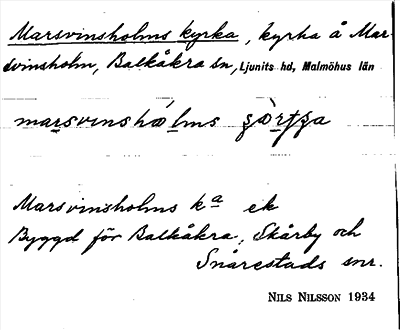 Marsvinsholms kyrka, kyrka å Mar-
svinsholm, Balkåkra sn, Ljunits hd, Malmöhus län
marsvinshólms
Marsvinsholms kª ek
Byggd för Balkåkra, Skårby och
Snårestads snr.
NILS NILSSON 1934